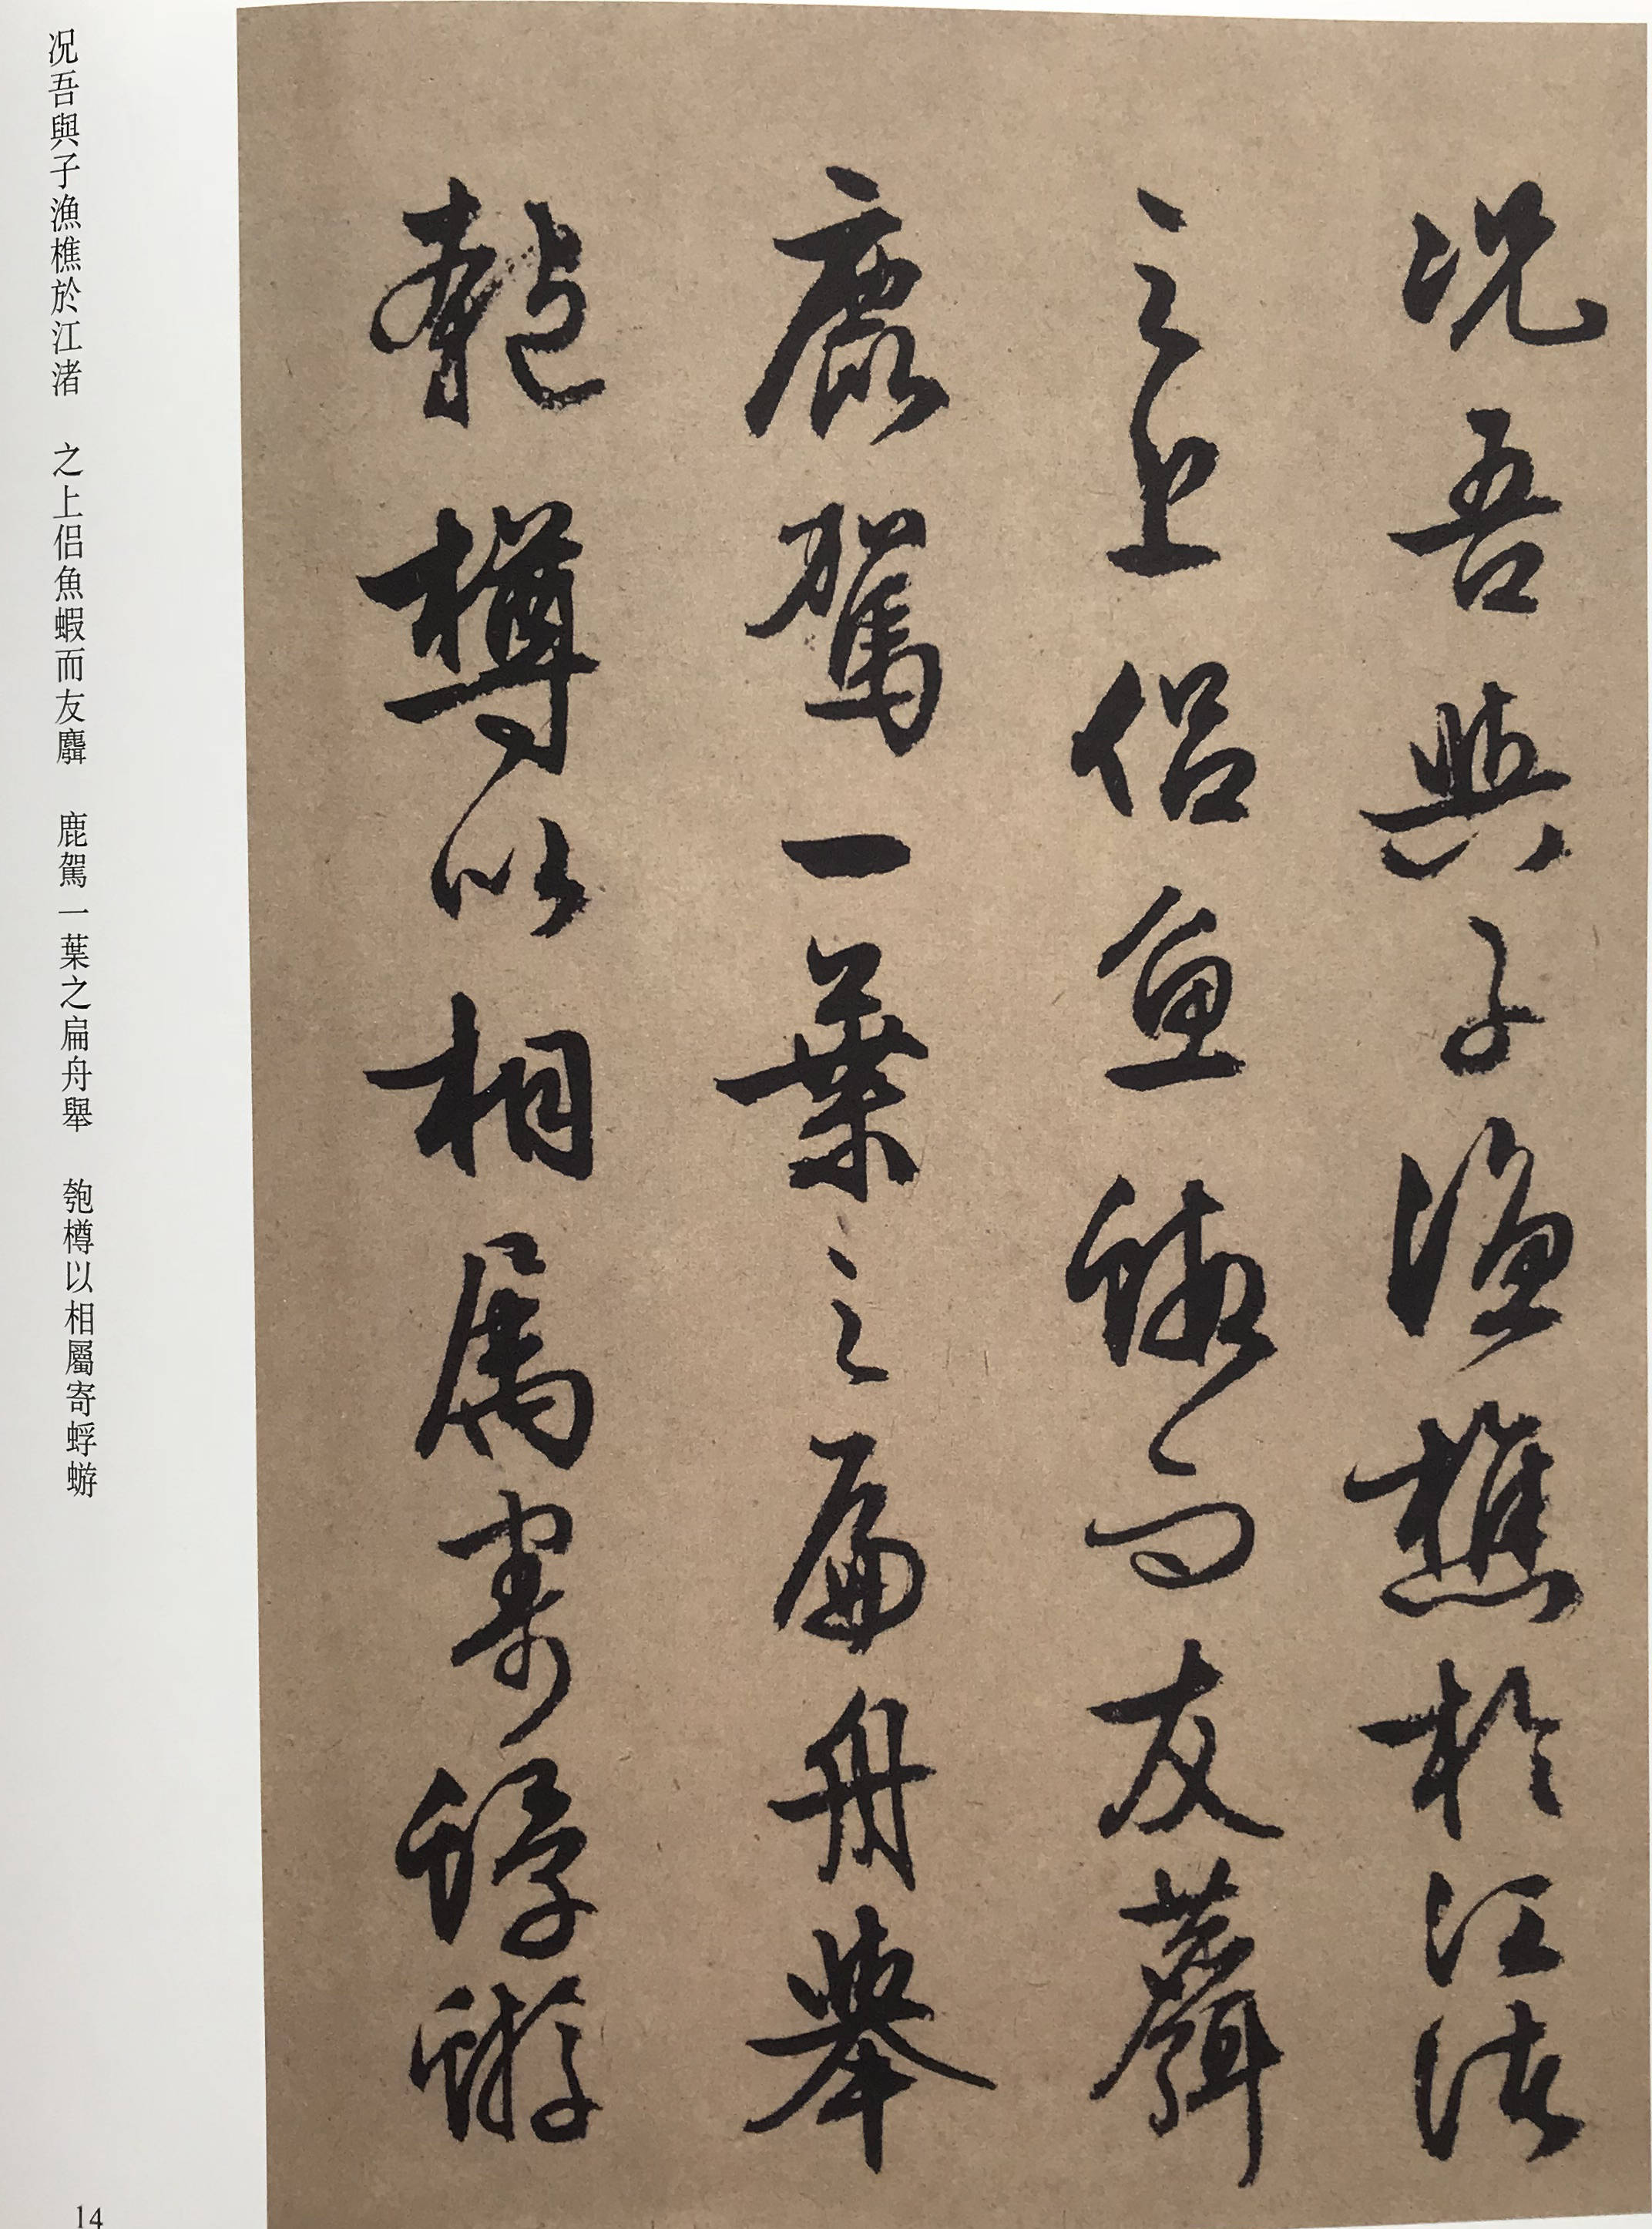 况吾與子漁樵於江渚
之上侣魚蝦而友麝
鹿駕一葉之扁舟舉
匏樽以相属寄蜉蝣
况吾與子漁樵於江渚 之上侣魚蝦而友麝 鹿駕一葉之扁舟舉 匏樽以相屬寄蜉蝣
14